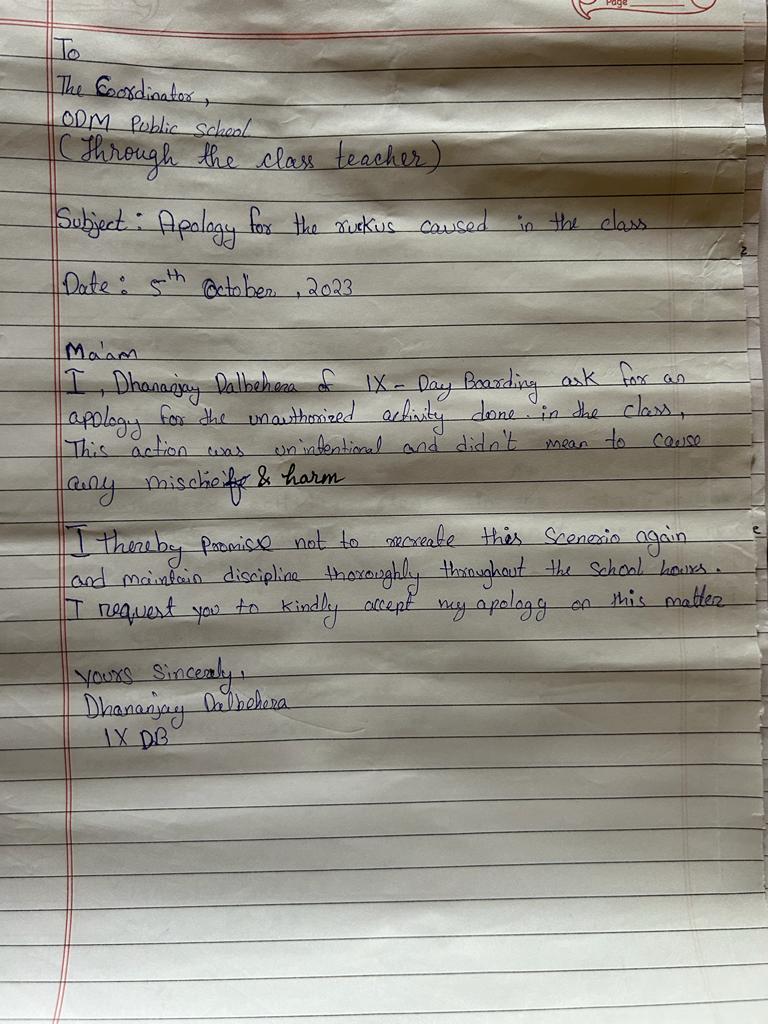 Page
To
The Coordinator,
ODM Public School
(Through the class teacher)
Subject: Apology for the ruckus caused in the class
Date: 5th October, 2023
Ma'am
I, Dhananjay Dalbehera of IX - Day Boarding ask for an
apology for the unauthorized activity done in the class,
This action was unintentional and didn't mean to cause
any mischeif & harm
I thereby promise not to recreate this Scenerio again
and maintain discipline thoroughly throughout the school hours.
I request you to kindly accept my apology on this matter
yours Sincerely,
Dhananjay Dalbehera
IX DB